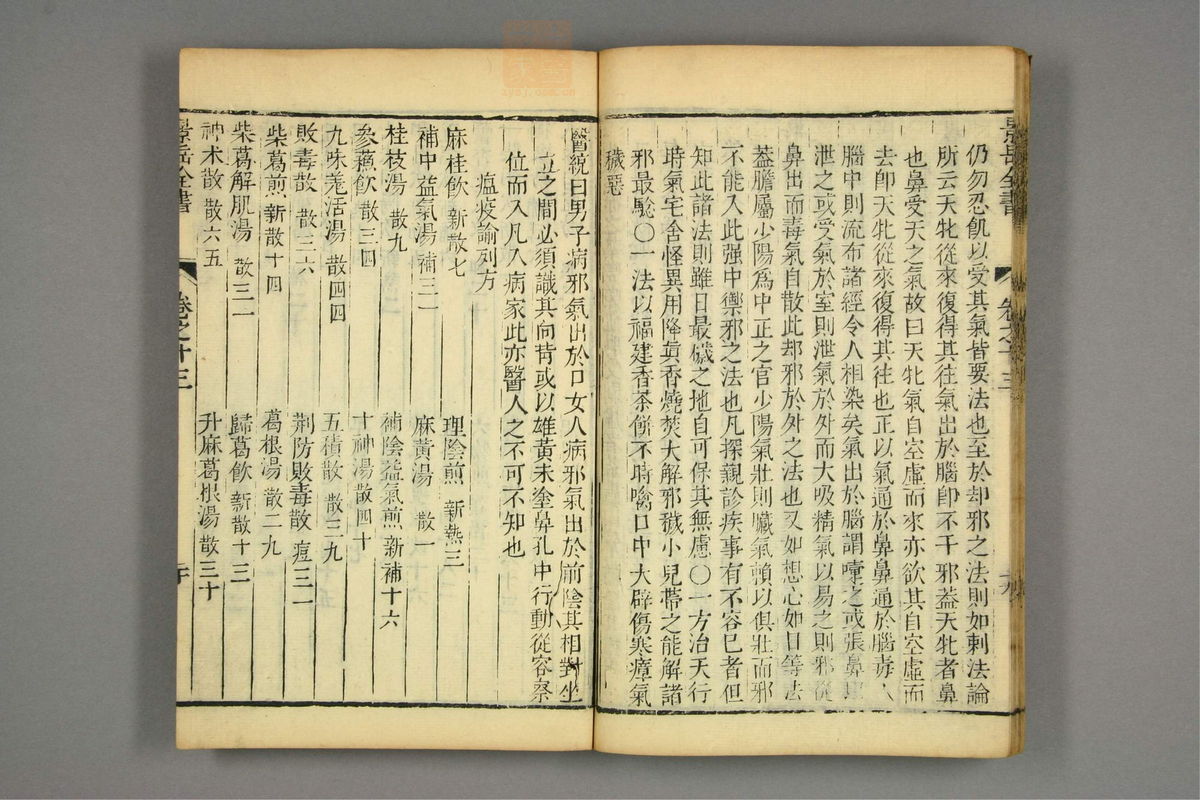 景岳全書
卷之十三
仍勿忍飢以受其氣皆要法也至於却邪之法則如刺法論
所云天牝從來復得其往氣出於腦即不干邪葢天牝者鼻
也鼻受天之氣故曰天牝氣自空虛而來亦欲其自空虛而
去即天牝從來復得其往也正以氣通於鼻鼻通於腦毒入
腦中則流布諸經令人相染矣氣出於腦謂嚏之或張鼻
泄之或受氣於室則泄氣於外而大吸精氣以易之則邪從
鼻出而毒氣自散此却邪於外之法也又如想心如日等法
葢膽屬少陽為中正之官少陽氣壯則臟氣賴以俱壯而邪
不能入此强中禦邪之法也凡探親診疾事有不容已者但
知此諸法則雖日最穢之地自可保其無慮○一方治天行
時氣宅舍怪異用降真香燒焚大解邪穢小兒帶之能解諸
邪最驗○一法以福建香茶餅不時噙口中大辟傷寒瘴氣
穢惡
醫統曰男子病邪氣出於口女人病邪氣出於前陰其相對坐
立之間必須識其向背或以雄黃末塗鼻孔中行動從容察
位而入凡入病家此亦醫人之不可不知也
瘟疫論列方
麻桂飲 新散七 理陰煎 新熱三
補中益氣湯 補三一 麻黃湯 散一
桂枝湯 散九 補陰益氣煎 新補十六
參蘇飲 散三四 十神湯 散四十
九味羌活湯 散四四 五積散 散三九
敗毒散 散三六 荆防敗毒散 痘三一
柴葛煎 新散十四 葛根湯 散二九
柴葛解肌湯 散三一 歸葛飲 新散十三
神术散 散六五 升麻葛根湯 散三十
景岳全書
卷之十三